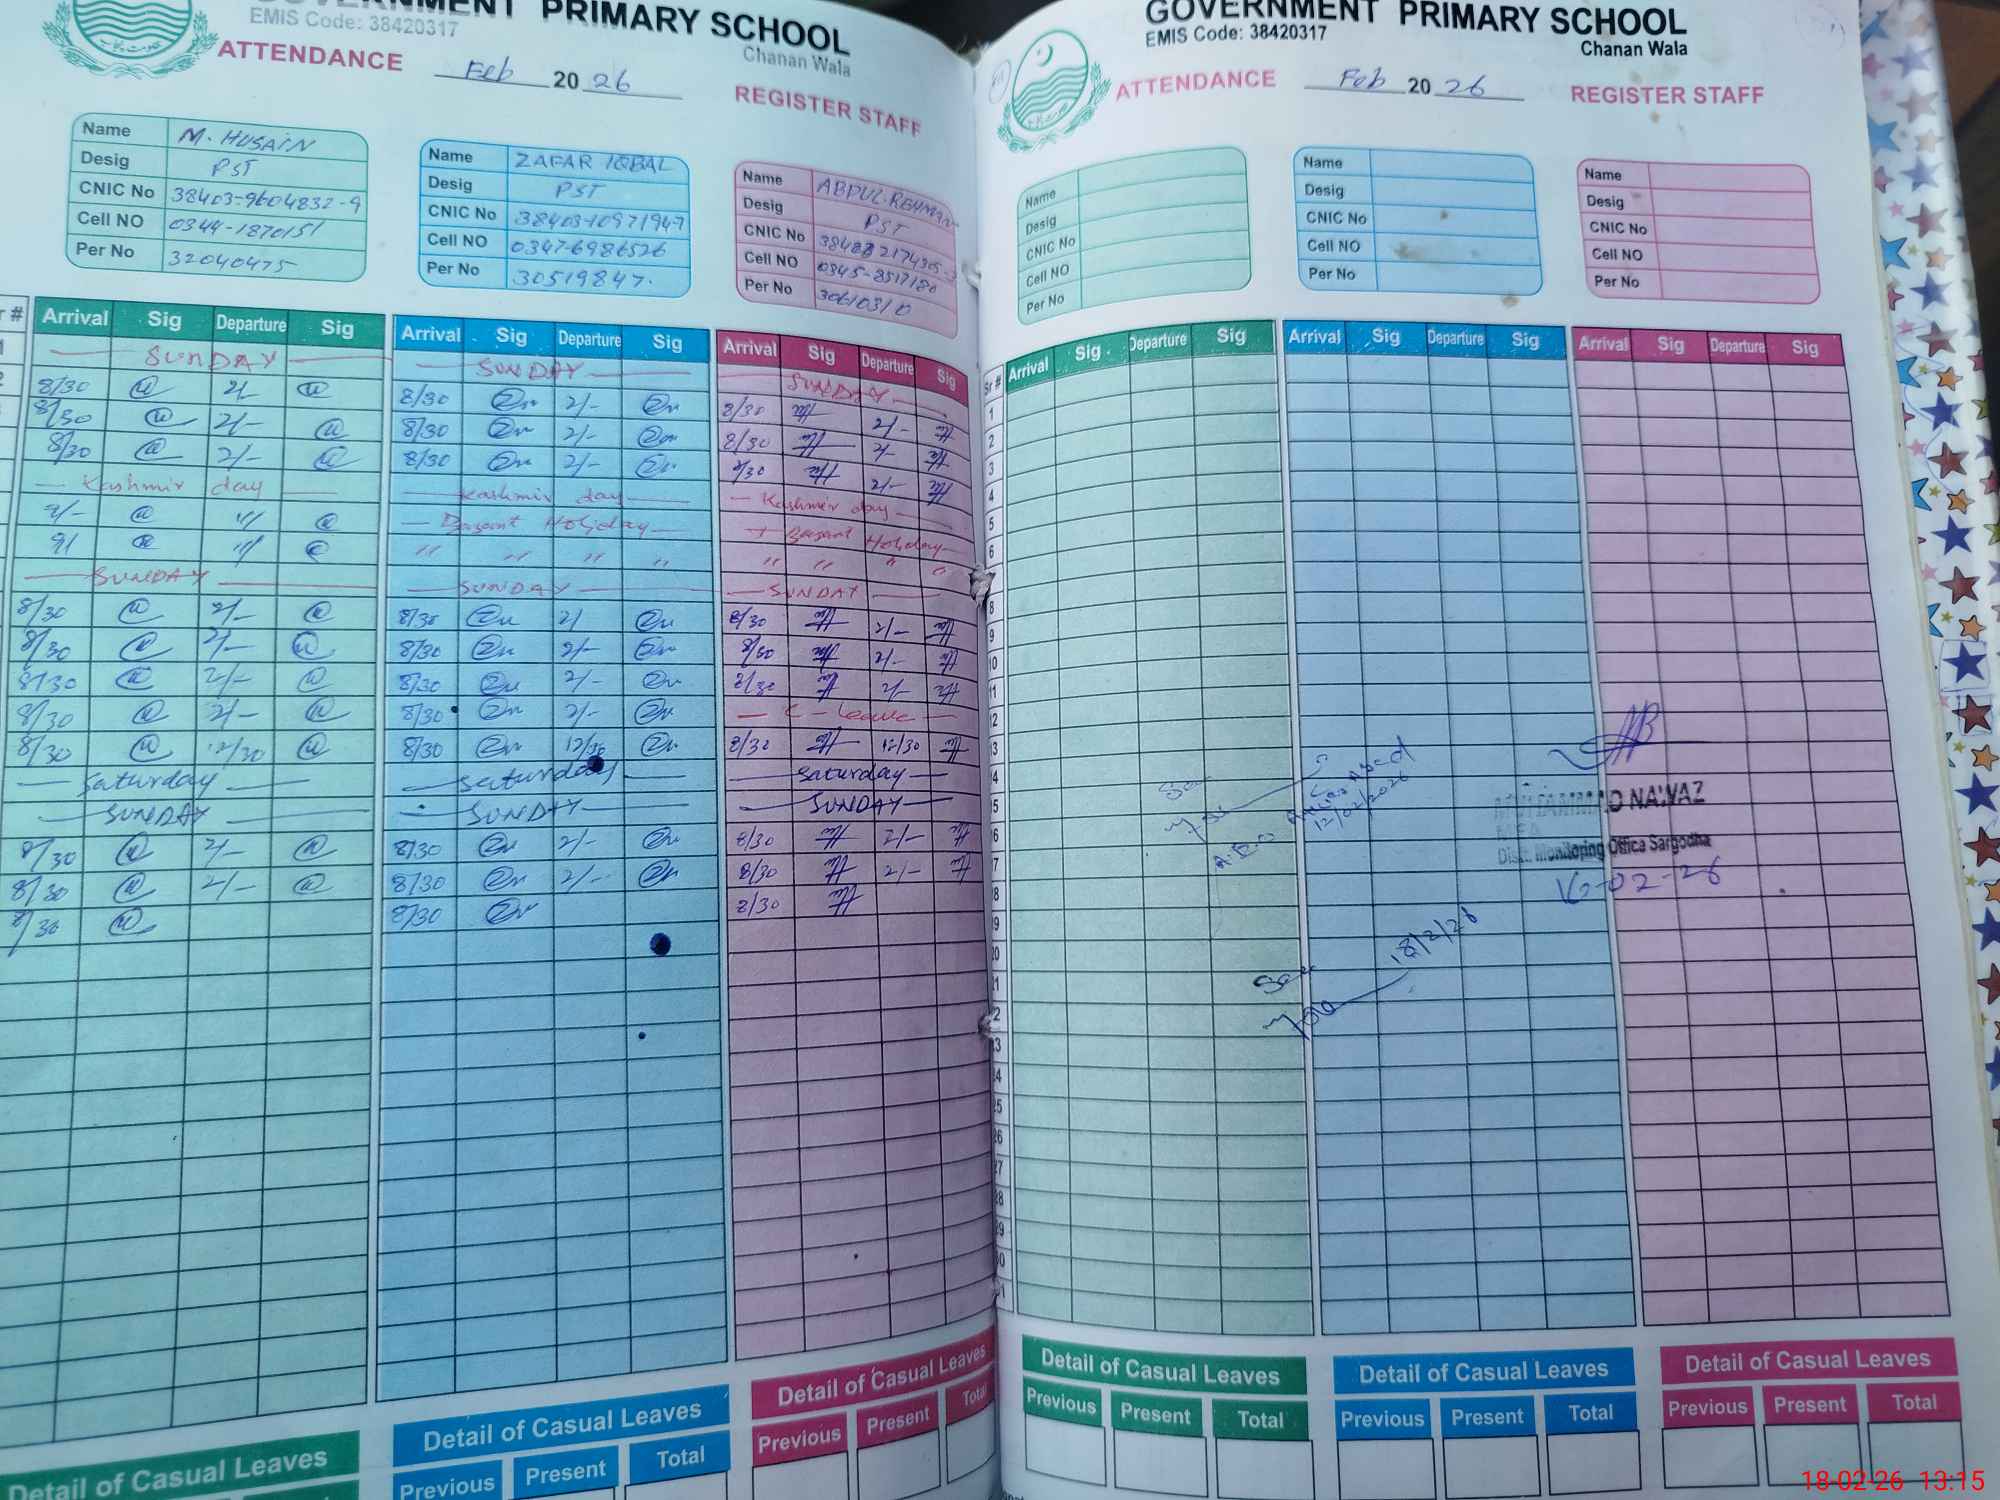 GOVERNMENT PRIMARY SCHOOL
EMIS Code: 38420317
Chanan Wala
ATTENDANCE Feb 20 26 REGISTER STAFF
Name M. HUSAIN
Desig PST
CNIC No 38403-9604832-9
Cell NO 0344-1870151
Per No 32040475
Name ZAFAR IQBAL
Desig PST
CNIC No
Cell NO 0347-6986526
Per No 30519847.
Name ABDUL.REHMAN
Desig PST
CNIC No
Cell NO 0345-8517180
Per No
Arrival Sig Departure Sig Arrival Sig Departure Sig Arrival Sig Departure Sig
SUNDAY SUNDAY SUNDAY
8/30 2/- 8/30 2/- 8/30 2/-
8/30 2/- 8/30 2/- 8/30 2/-
8/30 2/- 8/30 2/- 8/30 2/-
Kashmir day Kashmir day Kashmir day
Basant Holiday Basant Holiday
" " " " " " " "
SUNDAY SUNDAY SUNDAY
8/30 2/- 8/30 2/ 8/30 2/-
8/30 2/- 8/30 2/- 8/30 2/-
8/30 2/- 8/30 2/- 8/30 2/-
8/30 2/- 8/30 2/- C-Leave
8/30 12/30 8/30 12/30 8/30 12/30
Saturday Saturday Saturday
SUNDAY SUNDAY SUNDAY
8/30 2/- 8/30 2/- 8/30 2/-
8/30 2/- 8/30 2/- 8/30 2/-
8/30 8/30 8/30
Detail of Casual Leaves Detail of Casual Leaves Detail of Casual Leaves
Previous Present Total Previous Present Total
GOVERNMENT PRIMARY SCHOOL
EMIS Code: 38420317
Chanan Wala
ATTENDANCE Feb 20 26 REGISTER STAFF
Name
Desig
CNIC No
Cell NO
Per No
Name
Desig
CNIC No
Cell NO
Per No
Name
Desig
CNIC No
Cell NO
Per No
Sr # Arrival Sig Departure Sig Arrival Sig Departure Sig Arrival Sig Departure Sig
1
2
3
4
5
6
8
9
10
11
12
13
14
15
16
17
18
19
20
21
22
23
24
25
26
27
28
29
30
31
A.E.O
12/02/2026
MUHAMMAD NAWAZ
MEA
Distt. Monitoring Office Sargodha
18/2/26
Detail of Casual Leaves Detail of Casual Leaves Detail of Casual Leaves
Previous Present Total Previous Present Total Previous Present Total
18-02-26 13:15